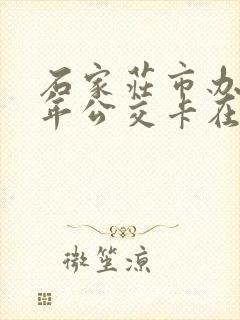 石家莊市办
年公交卡在
微笙凉